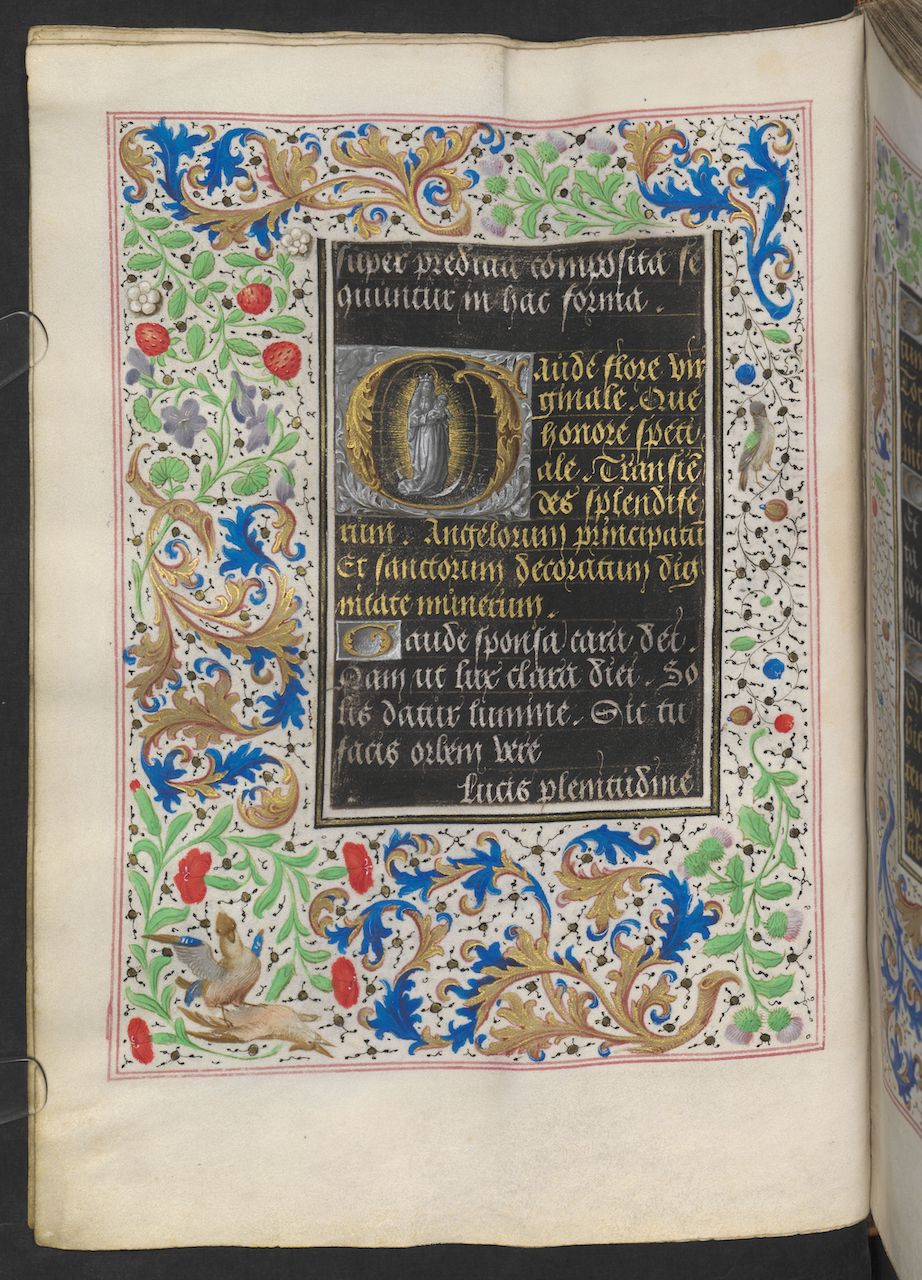 super predicta composita se
quuntur in hac forma.
Gaude flore vir
ginale. Que
honore speci
ale. Transiē
des splendife
rum. Angelorum principatū
Et sanctorum decoratum dig
nitate munerum.
Gaude sponsa cara dei.
Nam ut lux clara diei. So
lis datur lumine. Sic tu
facis orbem vere
Lucis plenitudine